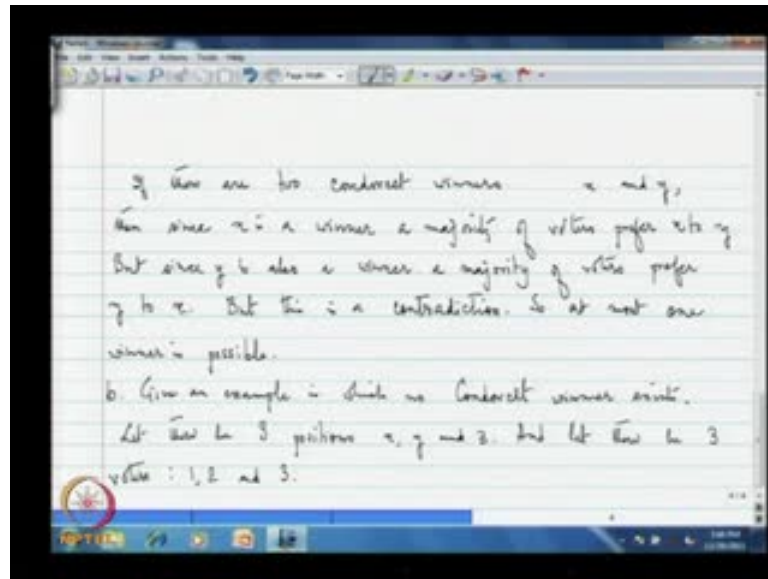 If there are two condorcet winners x and y,
then since x is a winner a majority of voters prefer x to y
But since y is also a winner a majority of voters prefer
y to x. But this is a contradiction. So at most one
winner is possible.
b. Give an example in which no Condorcet winner exists.
Let there be 3 positions x, y and z. And let there be 3
voters : 1, 2 and 3.
NPTEL